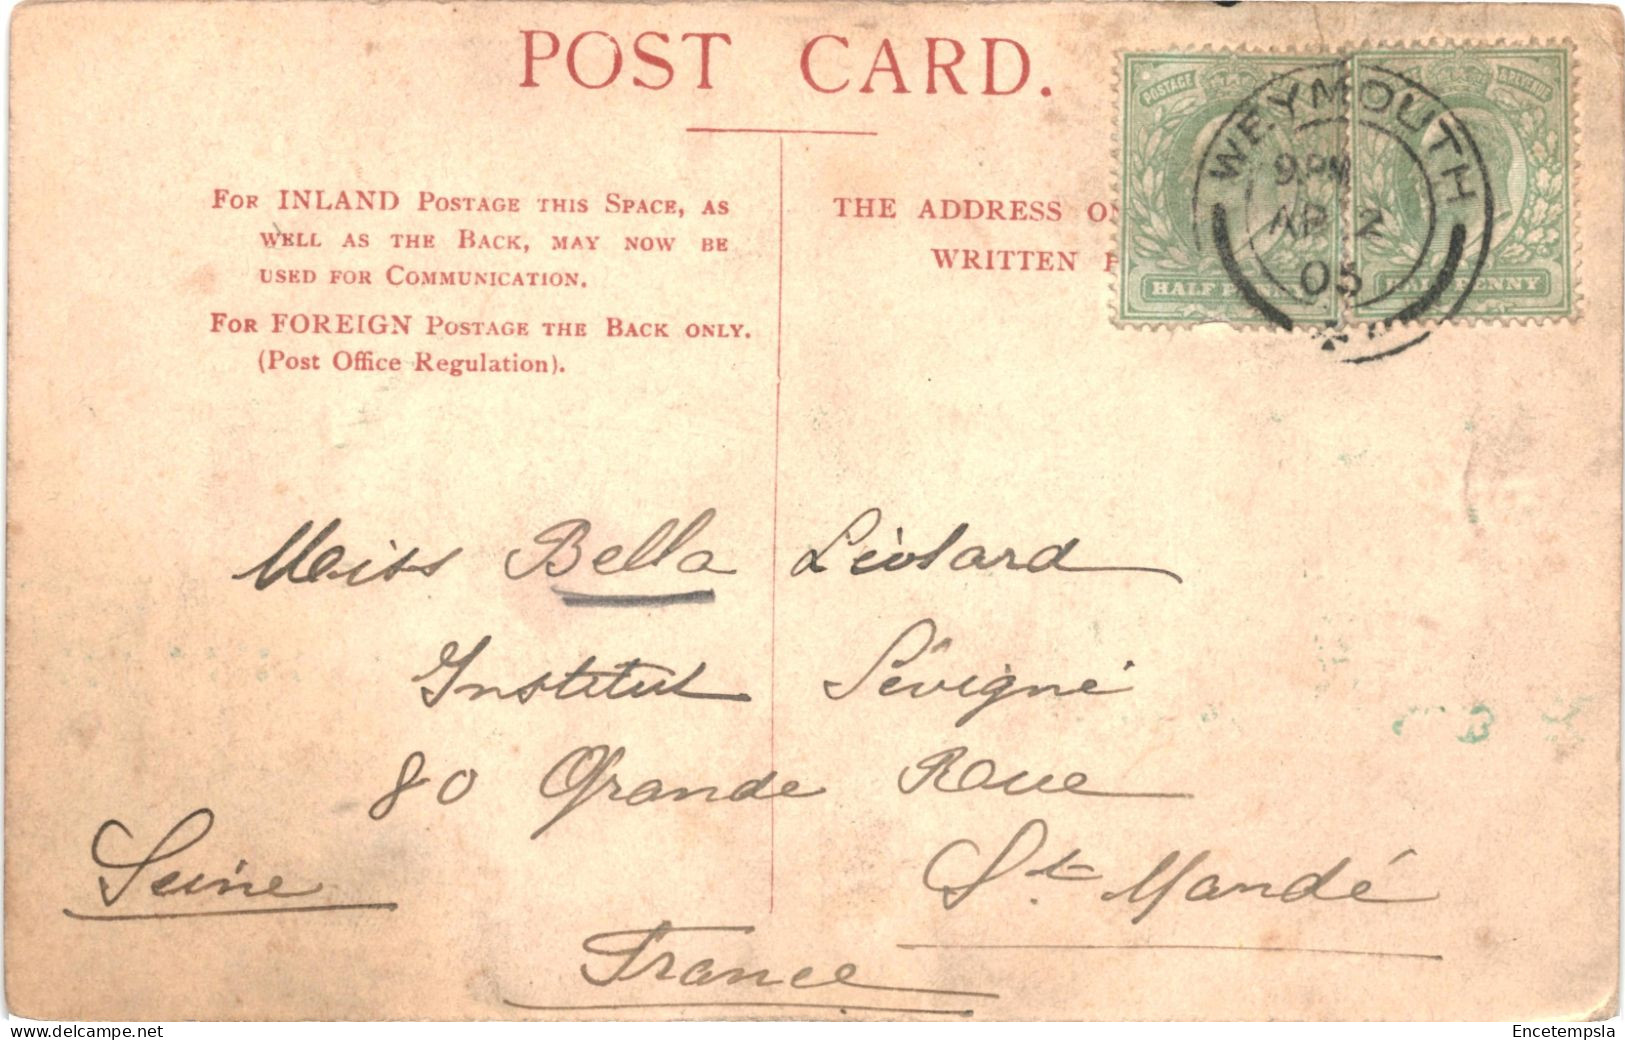 POST CARD.
FOR INLAND POSTAGE THIS SPACE, AS
WELL AS THE BACK, MAY NOW BE
USED FOR COMMUNICATION.
FOR FOREIGN POSTAGE THE BACK ONLY.
(Post Office Regulation).
THE ADDRESS
WRITTEN
POSTAGE
HALF PENNY
HALFPENNY
WEYMOUTH
9 PM
AP 2
05
Miss Bella
Institut Sévigné
80 Grande Rue
Seine
St. Mandé
France
www.delcampe.net
Encetempsla